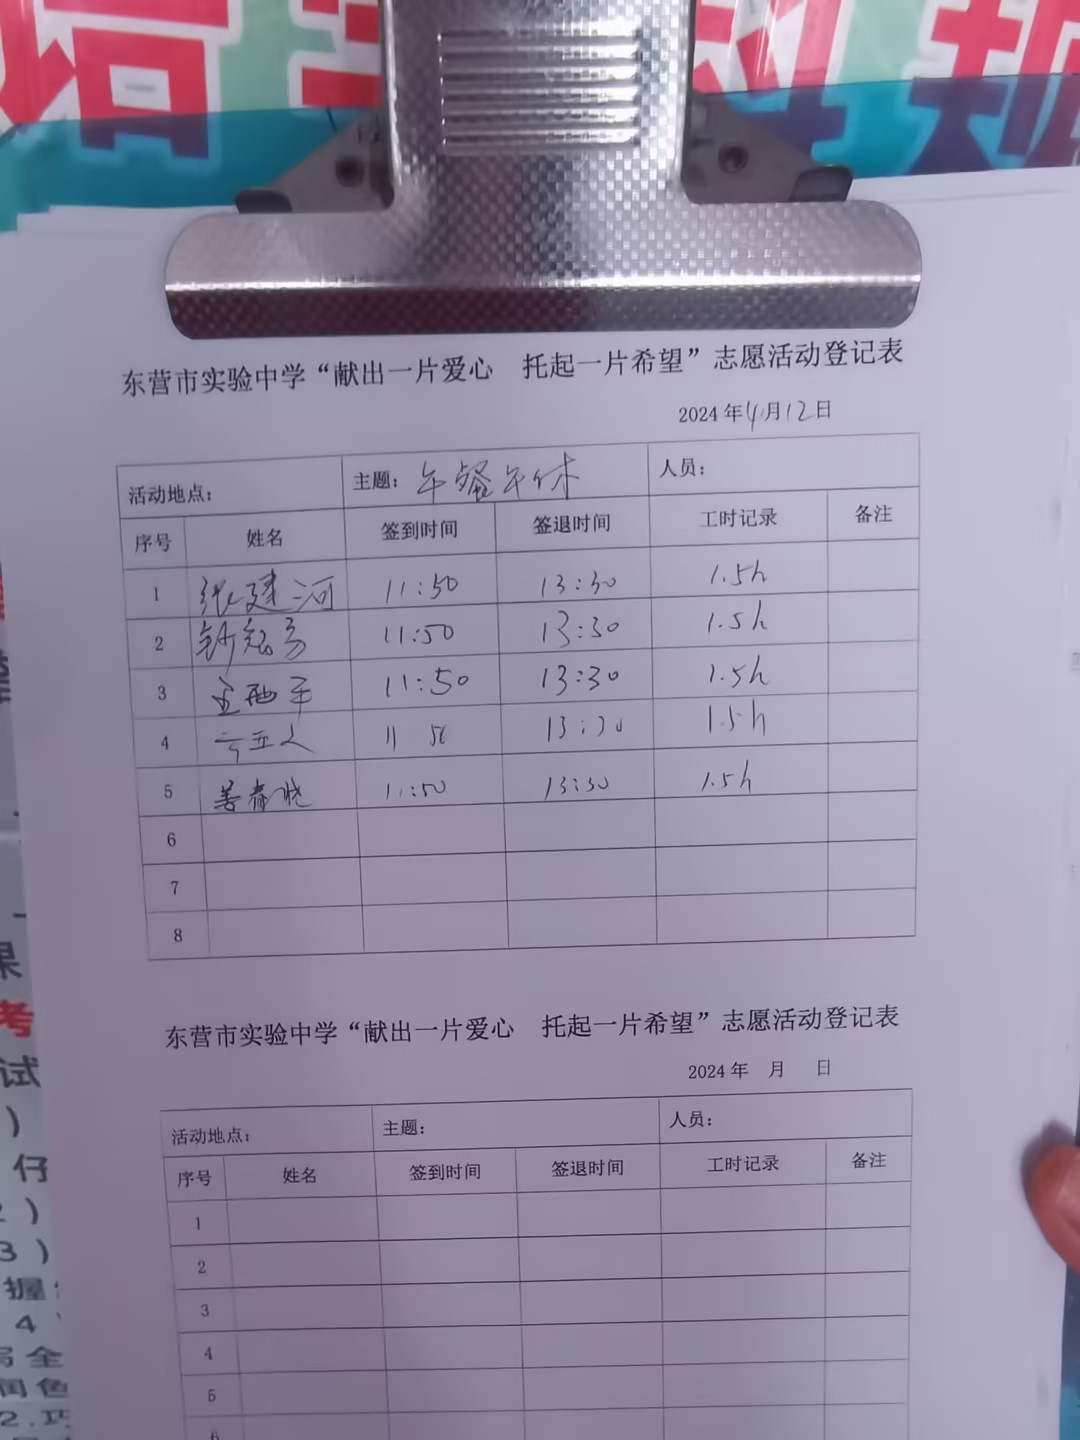 东营市实验中学“献出一片爱心 托起一片希望”志愿活动登记表
2024年4月12日
活动地点： 主题：午餐午休 人员：
序号 姓名 签到时间 签退时间 工时记录 备注
1 张建河 11:50 13:30 1.5h
2 11:50 13:30 1.5h
3 11:50 13:30 1.5h
4 11 50 13:30 1.5h
5 姜春晓 11:50 13:30 1.5h
6
7
8
东营市实验中学“献出一片爱心 托起一片希望”志愿活动登记表
2024年 月 日
活动地点： 主题： 人员：
序号 姓名 签到时间 签退时间 工时记录 备注
1
2
3
4
5
6
果
考
试
)
仔
)
3)
握
4
全
润色
2.巧